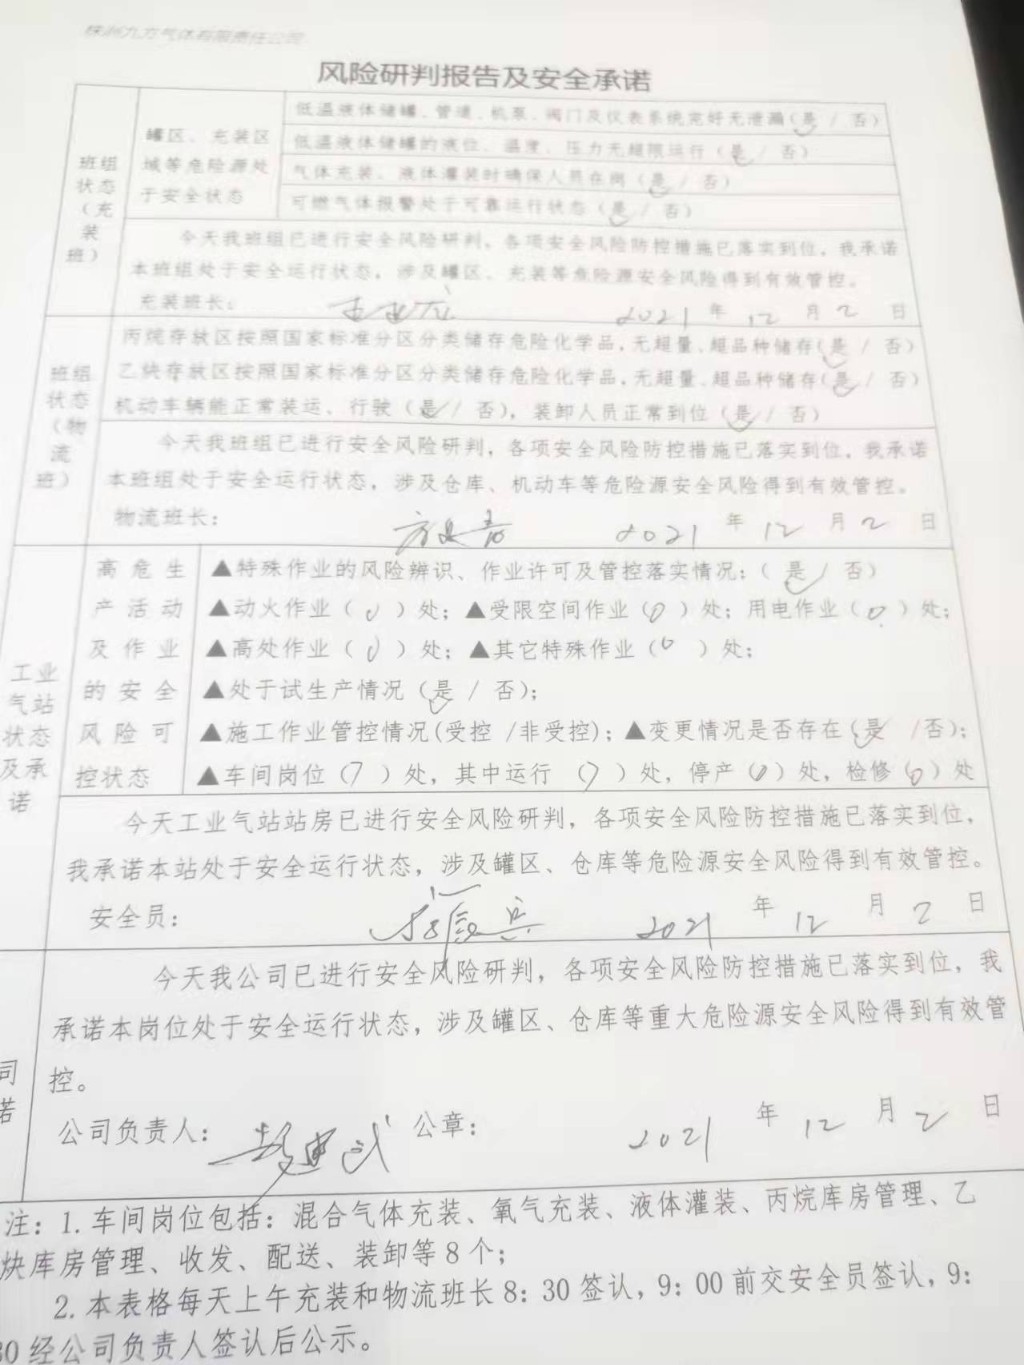 株洲九方气体有限责任公司
风险研判报告及安全承诺
班组状态（充装班）
罐区、充装区域等危险源处于安全状态
低温液体储罐、管道、机泵、阀门及仪表系统完好无泄漏（是 / 否）
低温液体储罐的液位、温度、压力无超限运行（是 / 否）
气体充装、液体灌装时确保人员在岗（是 / 否）
可燃气体报警处于可靠运行状态（是 / 否）
今天我班组已进行安全风险研判，各项安全风险防控措施已落实到位，我承诺
本班组处于安全运行状态，涉及罐区、充装等危险源安全风险得到有效管控。
充装班长： 2021 年 12 月 2 日
班组状态（物流班）
丙烷存放区按照国家标准分区分类储存危险化学品，无超量、超品种储存（是 / 否）
乙炔存放区按照国家标准分区分类储存危险化学品，无超量、超品种储存（是 / 否）
机动车辆能正常装运、行驶（是 / 否），装卸人员正常到位（是 / 否）
今天我班组已进行安全风险研判，各项安全风险防控措施已落实到位，我承诺
本班组处于安全运行状态，涉及仓库、机动车等危险源安全风险得到有效管控。
物流班长： 2021 年 12 月 2 日
工业气站状态及承诺
高危生产活动及作业的安全风险可控状态
▲特殊作业的风险辨识、作业许可及管控落实情况：（ 是 / 否）
▲动火作业（ 0 ）处；▲受限空间作业（0 ）处；用电作业（ 0 ）处；
▲高处作业（ 0 ）处；▲其它特殊作业（0 ）处；
▲处于试生产情况（是 / 否）；
▲施工作业管控情况(受控 /非受控)；▲变更情况是否存在（是 /否）；
▲车间岗位（7 ）处，其中运行 （7 ）处，停产（0 ）处，检修（0 ）处
今天工业气站站房已进行安全风险研判，各项安全风险防控措施已落实到位，
我承诺本站处于安全运行状态，涉及罐区、仓库等危险源安全风险得到有效管控。
安全员： 2021 年 12 月 2 日
司
诺
今天我公司已进行安全风险研判，各项安全风险防控措施已落实到位，我
承诺本岗位处于安全运行状态，涉及罐区、仓库等重大危险源安全风险得到有效管
控。
公司负责人： 公章： 2021 年 12 月 2 日
注：1.车间岗位包括：混合气体充装、氧气充装、液体灌装、丙烷库房管理、乙
炔库房管理、收发、配送、装卸等8个；
2.本表格每天上午充装和物流班长8：30签认，9：00前交安全员签认，9：
30经公司负责人签认后公示。